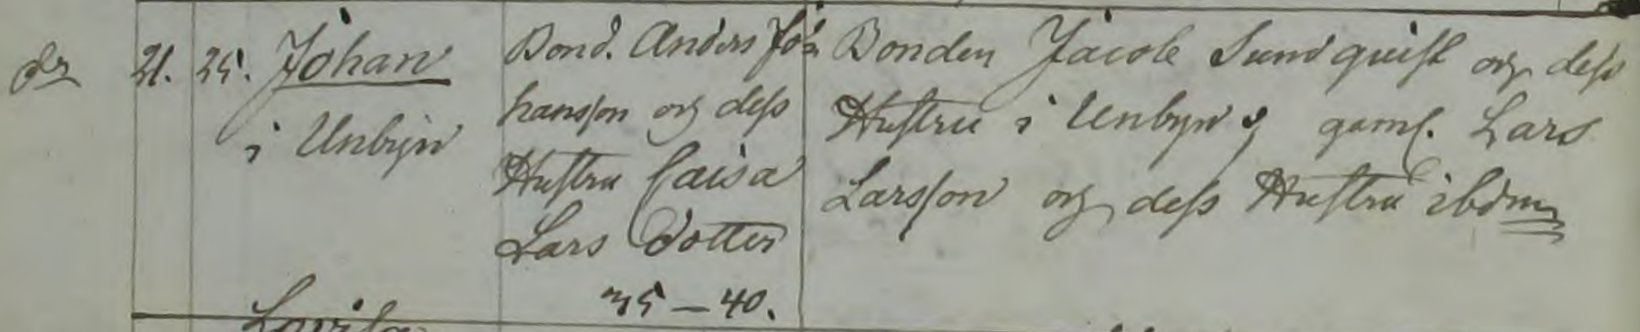 21. 25. Johan
i Unbyn
Bond. Anders Jo-
hansson och dess
Hustru Caisa
Lars Dotter
35 – 40.
Bonden Jacob Sundquist och dess
Hustru i Unbyn, gaml. Lars
Larsson och dess Hustru ibdm
Lovisa